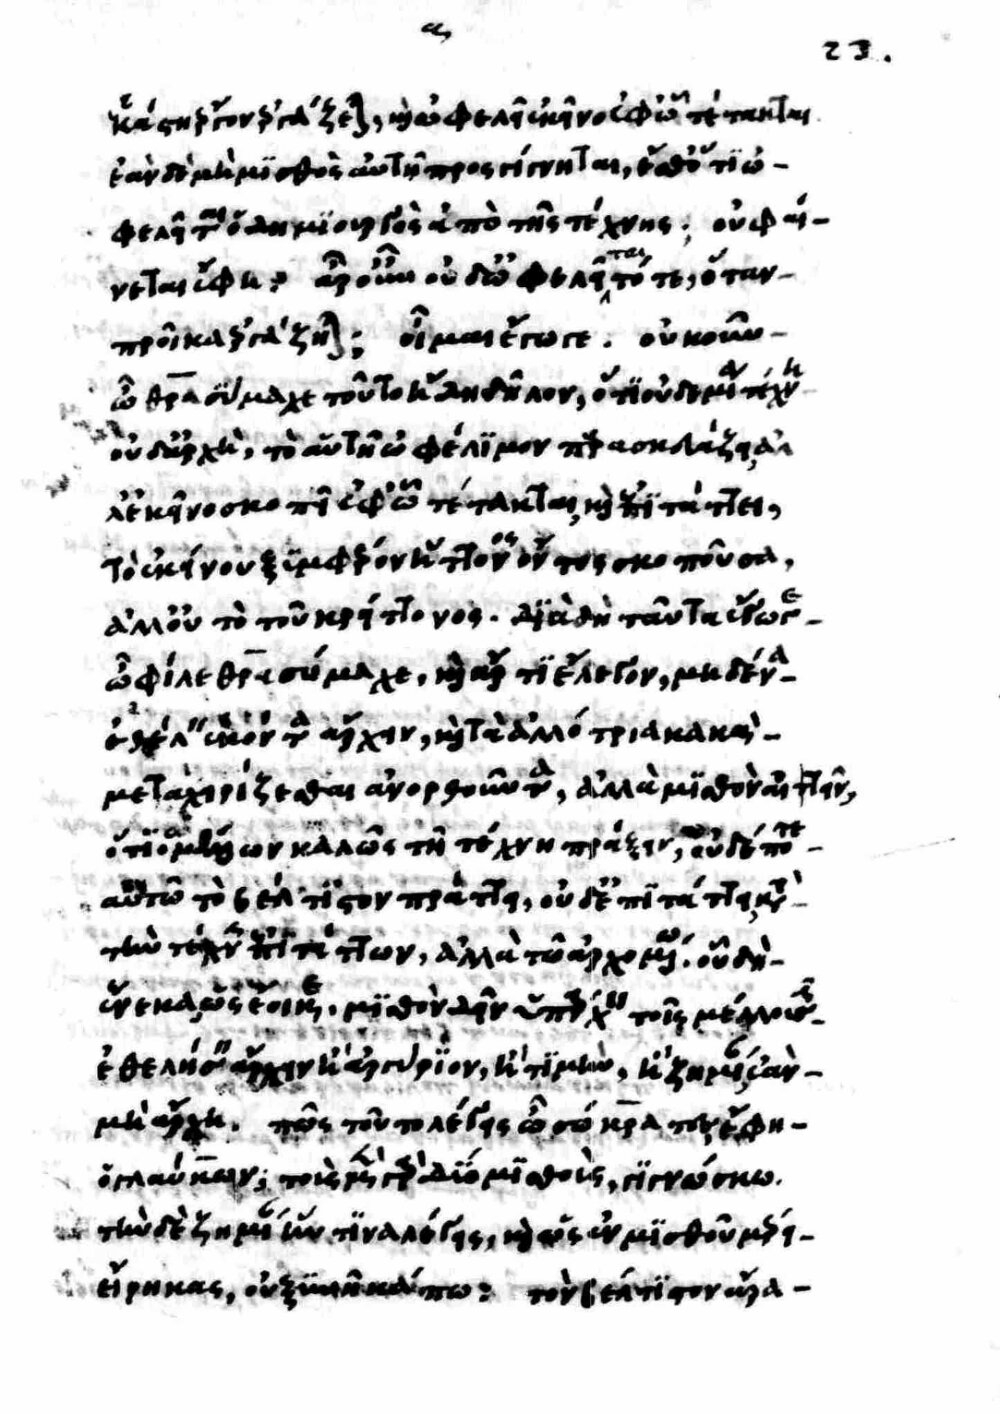 α,
23.
ἑκάστη ἔργον ἐργάζεται, καὶ ὠφελεῖ ἐκεῖνο ἐφ' ᾧ τέτακται
ἐὰν δὲ μὴ μϊσθὸς αὐτῆ προσγίγνηται, ἔσθ' ὅτϊ ὠ-
φελεῖται ὁ δημϊουργὸς ἀπὸ τῆς τέχνης; οὐ φαί-
νεται ἔφη: ἆρ' οὖν οὐδ' ὠφελεῖ τότε, ὅταν
προῖκα ἐργάζηται; οἶμαι ἔγωγε. οὐκοῦν
ὦ θρασύμαχε τοῦτο ἤδη δῆλον, ὅτϊ οὐδεμία τέχνη
οὐδ' ἀρχὴ, τὸ αὑτῆ ὠφέλϊμον παρασκευάζει, ἀλ
λ' ἐκεῖνο σκοπεῖ ἐφ' ᾧ τέτακται, καὶ ἐπϊτάττει,
τὸ ἐκείνου ξϋμφέρον ἥττονος ὄντος σκοποῦσα,
ἀλλ' οὐ τὸ τοῦ κρείττονος. δϊὰ δὴ ταῦτα ἔγωγε
ὦ φίλε θρασύμαχε, καὶ ἄρτϊ ἔλεγον, μηδένα
ἐθέλειν ἑκόντα ἄρχειν, καὶ τὰ ἀλλότρια κακὰ
μεταχειρίζεσθαι ἀνορθοῦντα, ἀλλὰ μϊσθὸν αἰτεῖν,
ὅτϊ ὁ μέλλων καλῶς τῆ τέχνη πράξειν, οὐδέποτε
αὑτῶ τὸ βέλτϊστον πράττει, οὐδ' ἐπϊτάττει, κατὰ
τὴν τέχνην ἐπϊτάττων, ἀλλὰ τῶ ἀρχομένω. οὗ δὴ
ἕνεκα, ὡς ἔοικε, μϊσθὸν δεῖν ὑπάρχειν τοῖς μέλλουσιν
ἐθελήσειν ἄρχειν ἢ ἀργύρϊον, ἢ τϊμὴν, ἢ ζημίαν, ἐὰν
μὴ ἄρχη. πῶς τοῦτο λέγεις ὦ σώκρατες, ἔφη
ὁ γλαύκων; τοὺς μὲν γὰρ δύο μϊσθοὺς, γϊγνώσκω.
τὴν δὲ ζημίαν ἥντϊνα λέγεις, καὶ ὡς ἐν μϊσθοῦ μέρει
εἴρηκας, οὐ ξϋνῆκά πω: τὸν βελτϊστον ἄρα